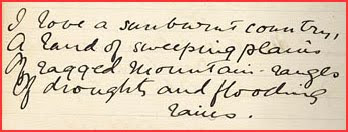 I love a sunburnt country,
A land of sweeping plains
Of ragged mountain-ranges
Of droughts and flooding
rains.